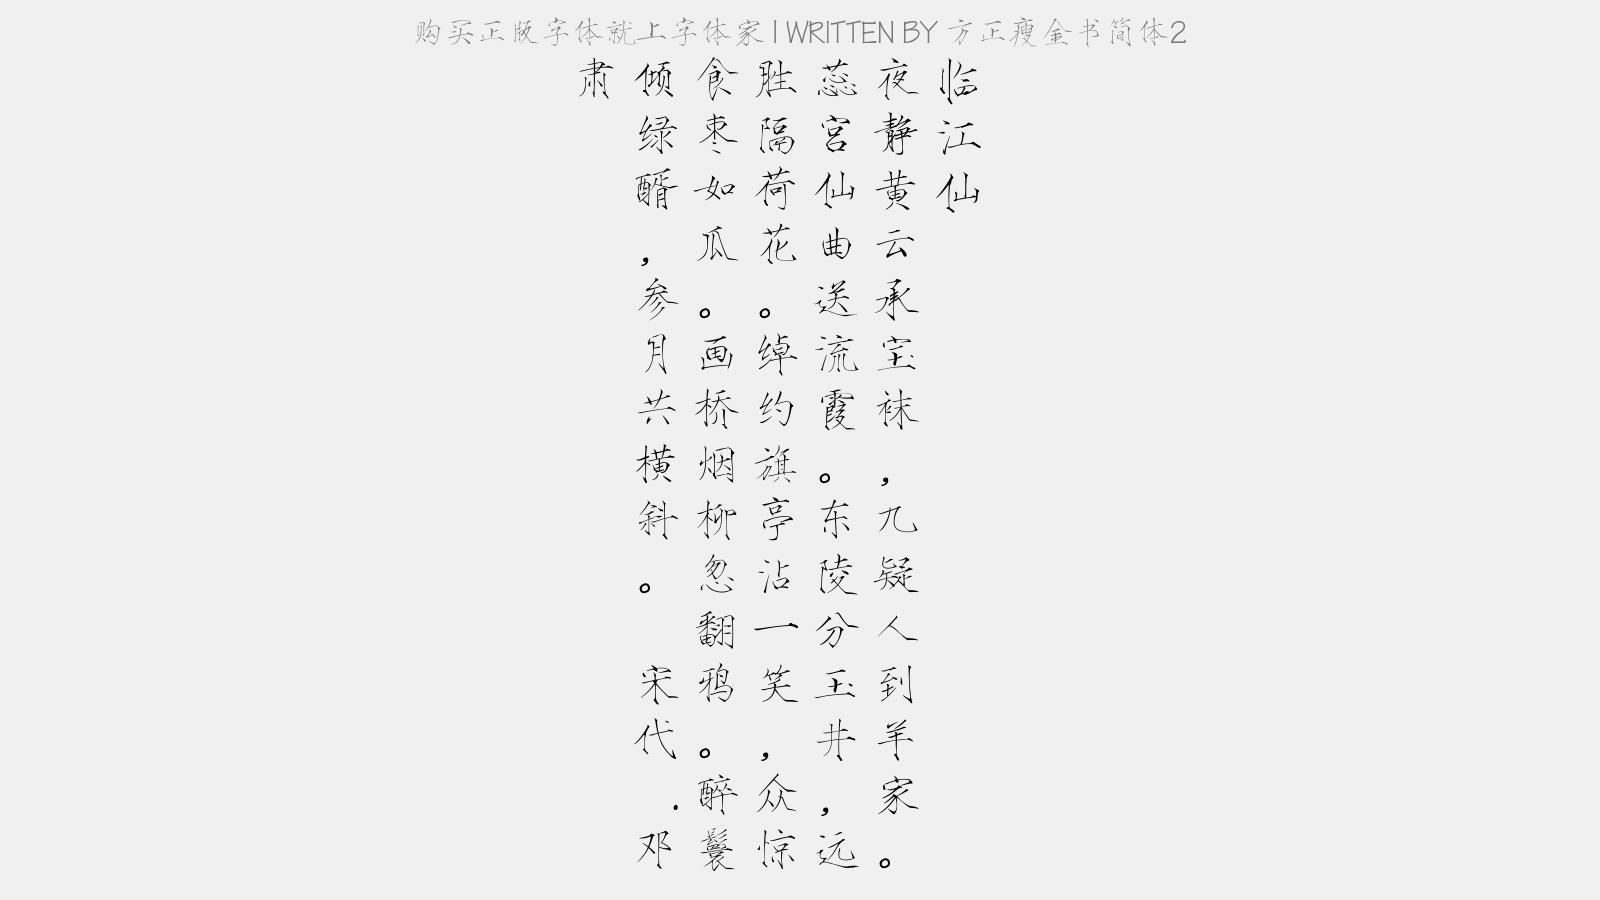 购买正版字体就上字体家 | WRITTEN BY 方正瘦金书简体2
临江仙
夜静黄云承宝袜，九疑人到羊家。
蕊宫仙曲送流霞。东陵分玉井，远
胜隔荷花。绰约旗亭沾一笑，众惊
食枣如瓜。画桥烟柳忽翻鸦。醉鬟
倾绿醑，参月共横斜。 宋代 . 邓
肃